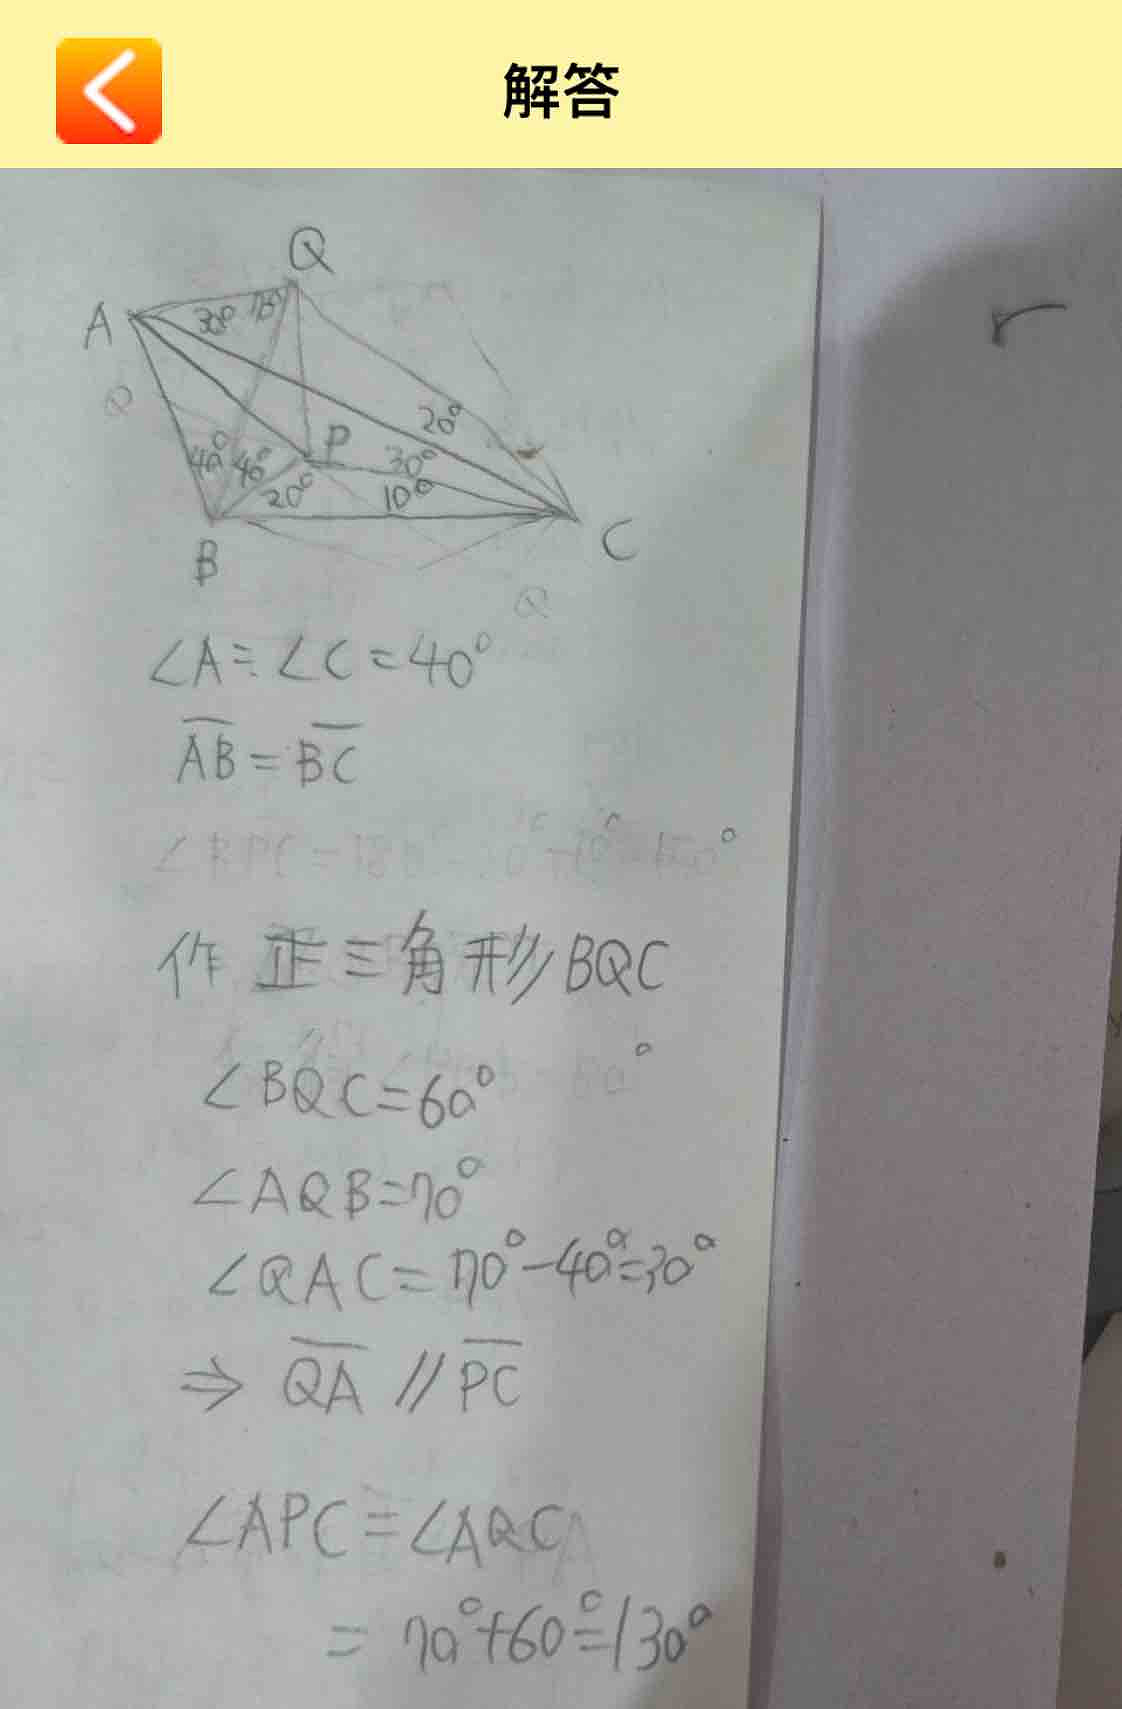 解答
Q
A
30° 70°
20°
P
40° 40°
30°
20° 10°
B
C
Q
∠A=∠C=40°
AB=BC
作正三角形BQC
∠BQC=60°
∠AQB=70°
∠QAC=70°-40°=30°
⇒ QA // PC
∠APC=∠AQC
= 70°+60°=130°